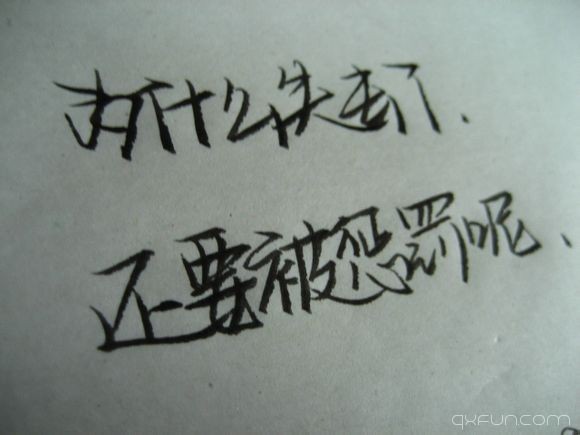 为什么失去了、
还要被惩罚呢、
qxfun.com